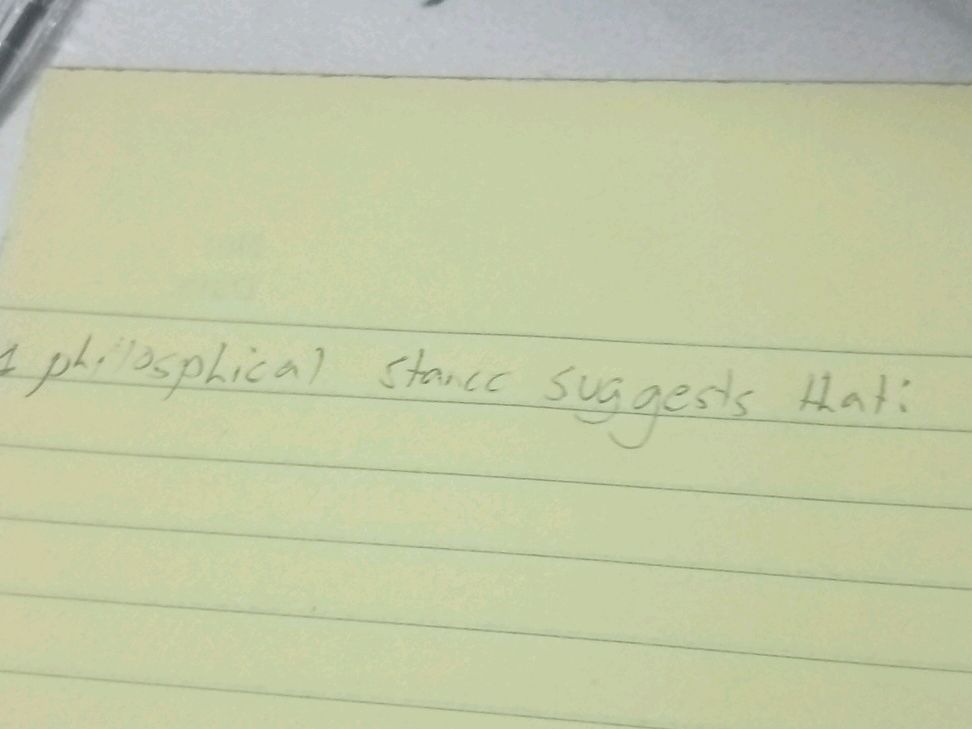 1 philosphical stance suggests that: